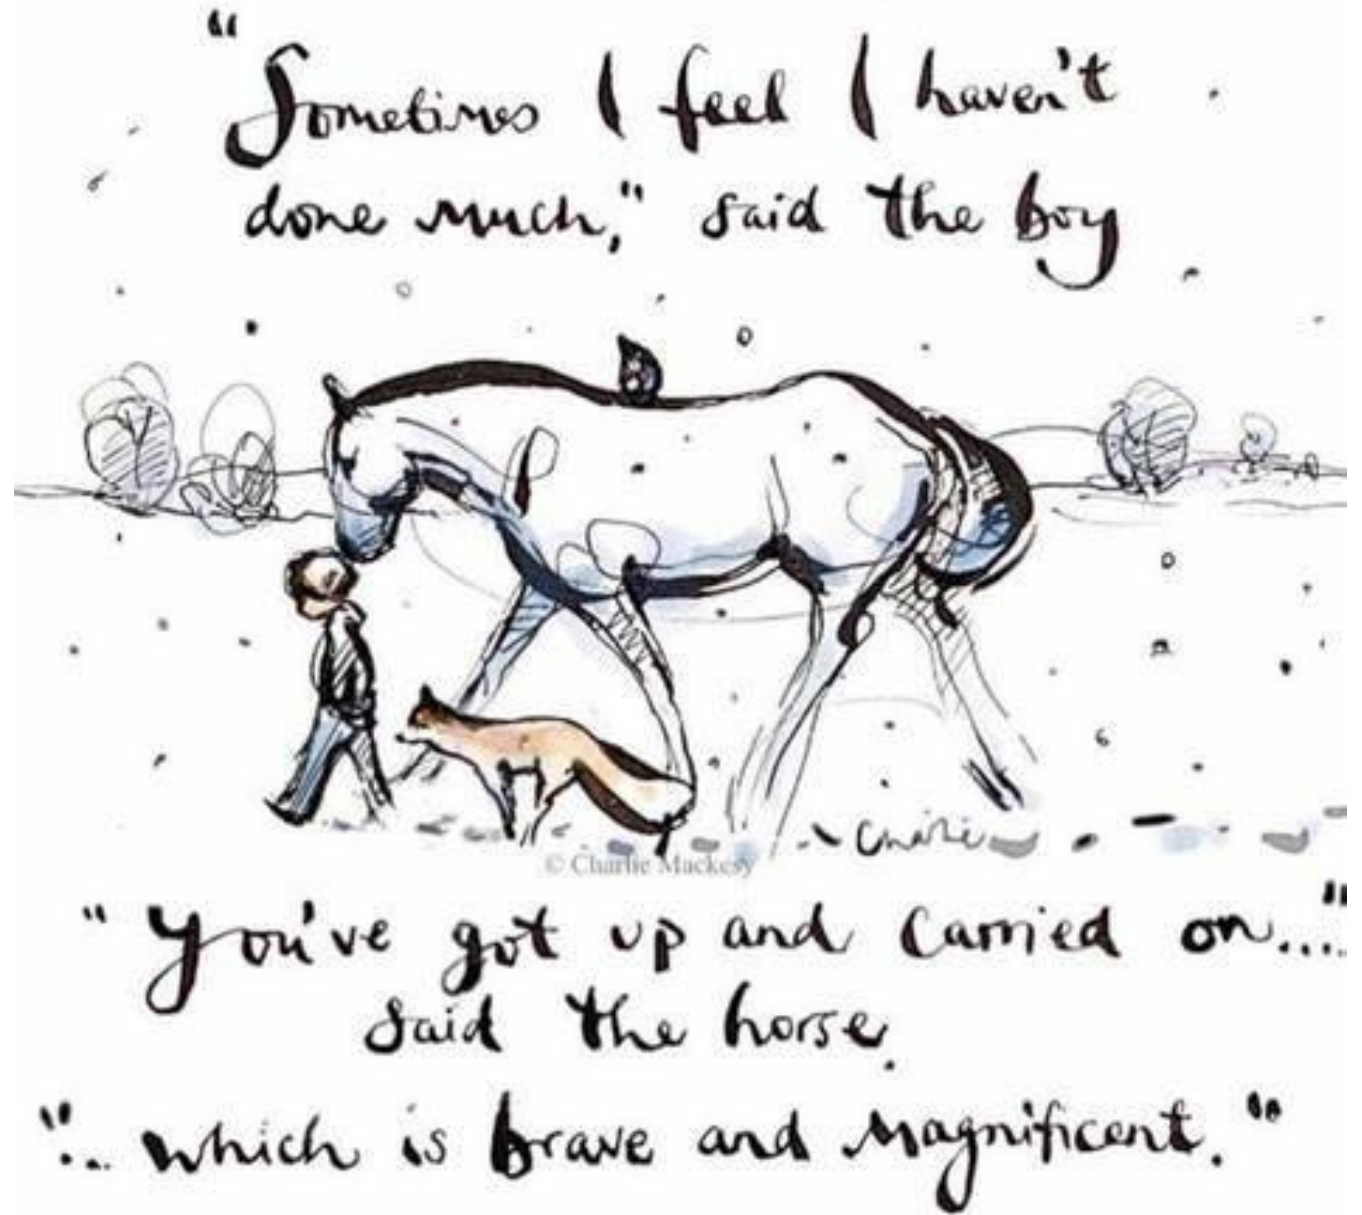 "Sometimes I feel I haven't
done much," said the boy
Charlie
© Charlie Mackesy
"You've got up and carried on...."
said the horse.
"... which is brave and magnificent."